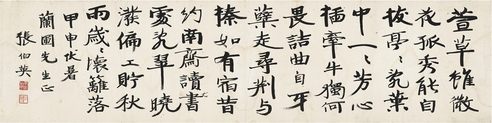 萱草雖微
花孤秀能自
拔亭〻亂葉
中一〻芳心
插牽牛獨何
畏詰曲自牙
蘖走尋荆与
榛如有宿昔
約南齋讀書
處亂翠曉
潑偏工貯秋
雨歲〻壞籬落
甲申伏暑
蘭國先生正
張伯英